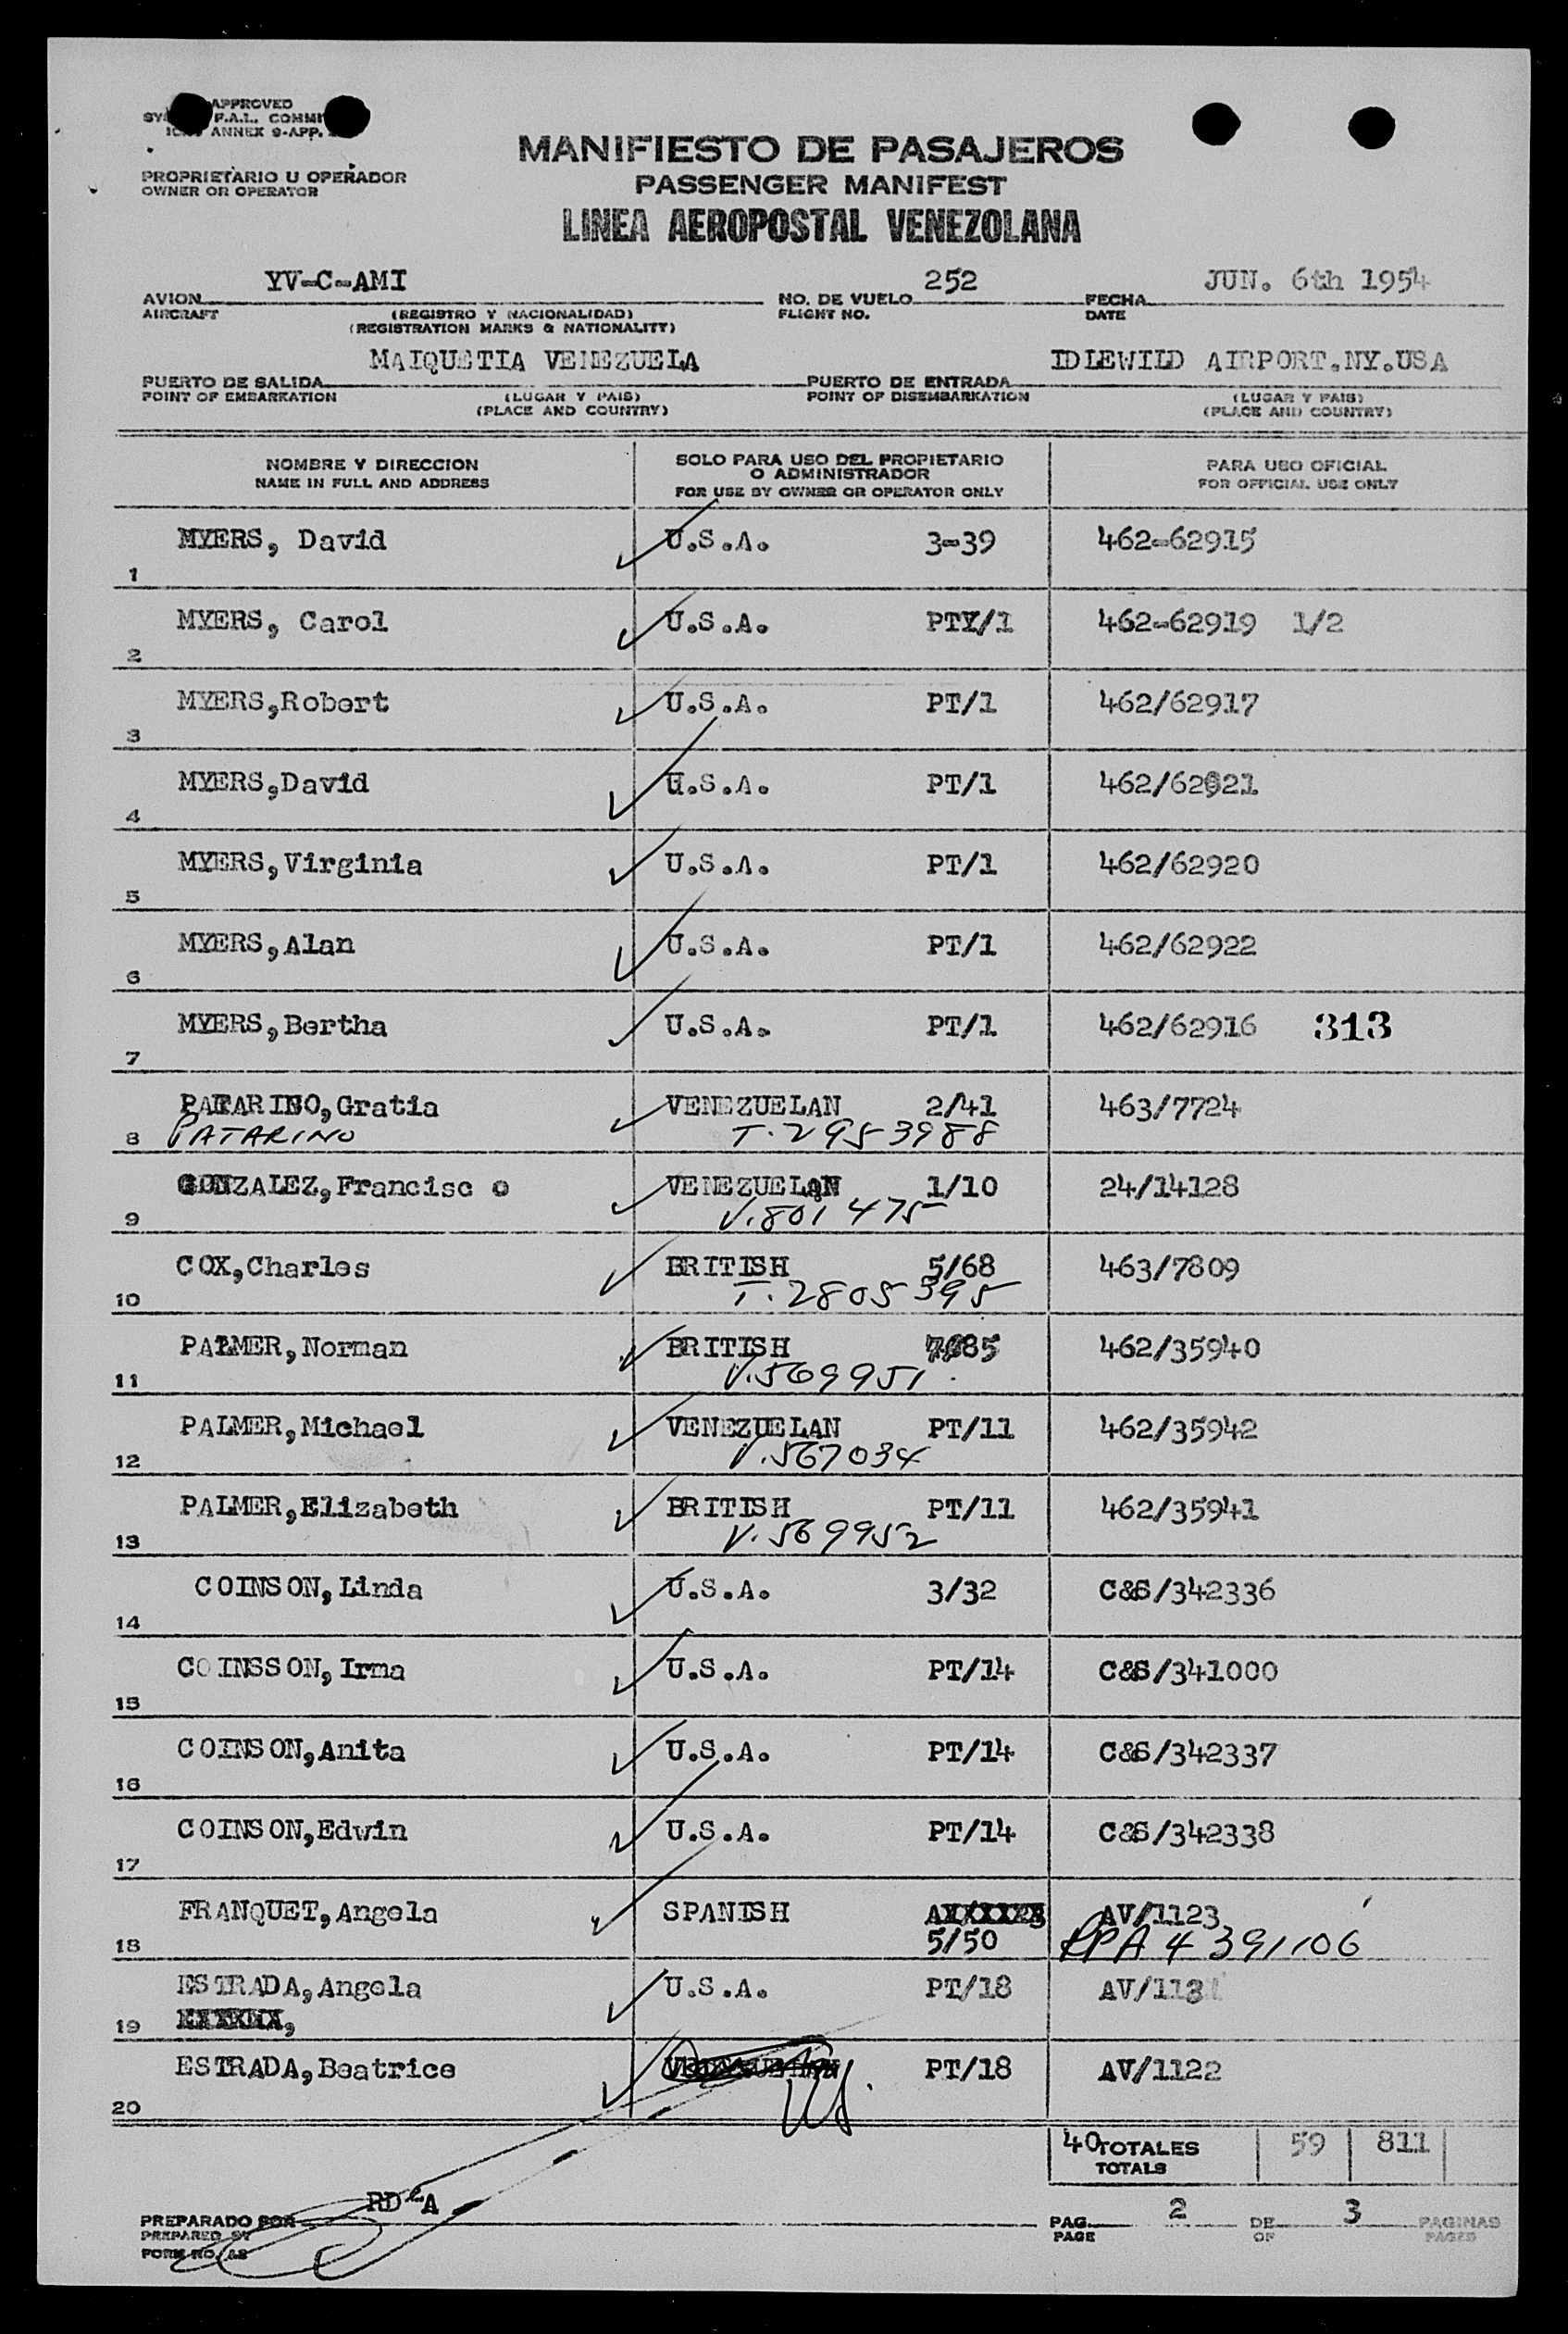 APPROVED
F.A.L. COMMI
ANNEX 9-APP.
MANIFIESTO DE PASAJEROS
PROPRIETARIO U OPERADOR
OWNER OR OPERATOR
PASSENGER MANIFEST
LINEA AEROPOSTAL VENEZOLANA
YV-C-AMI 252 JUN. 6th 1954
AVION NO. DE VUELO FECHA
AIRCRAFT (REGISTRO Y NACIONALIDAD) FLIGHT NO. DATE
(REGISTRATION MARKS & NATIONALITY)
MAIQUETIA VENEZUELA IDLEWILD AIRPORT.NY.USA
PUERTO DE SALIDA PUERTO DE ENTRADA
POINT OF EMBARKATION (LUGAR Y PAIS) POINT OF DISEMBARKATION (LUGAR Y PAIS)
(PLACE AND COUNTRY) (PLACE AND COUNTRY)
NOMBRE Y DIRECCION SOLO PARA USO DEL PROPIETARIO O ADMINISTRADOR PARA USO OFICIAL
NAME IN FULL AND ADDRESS FOR USE BY OWNER OR OPERATOR ONLY FOR OFFICIAL USE ONLY
MYERS, David U.S.A. 3-39 462-62915
1
MYERS, Carol U.S.A. PTY/1 462-62919 1/2
2
MYERS,Robert U.S.A. PT/1 462/62917
3
MYERS,David U.S.A. PT/1 462/62921
4
MYERS,Virginia U.S.A. PT/1 462/62920
5
MYERS,Alan U.S.A. PT/1 462/62922
6
MYERS,Bertha U.S.A. PT/1 462/62916 313
7
PATARINO,Gratia VENEZUELAN 2/41 463/7724
8 PATARINO T.2953988
GONZALEZ,Francisc o VENEZUELAN 1/10 24/14128
9 V.801475
COX,Charles BRITISH 5/68 463/7809
10 T.2805395
PALMER,Norman BRITISH 85 462/35940
11 V.569951
PALMER,Michael VENEZUELAN PT/11 462/35942
12 V.567034
PALMER,Elizabeth BRITISH PT/11 462/35941
13 V.569952
COINSON,Linda U.S.A. 3/32 C&S/342336
14
COINSSON,Irma U.S.A. PT/14 C&S/341000
15
COINSON,Anita U.S.A. PT/14 C&S/342337
16
COINSON,Edwin U.S.A. PT/14 C&S/342338
17
FRANQUET,Angela SPANISH AV/1123
18 5/50 PPA 4391106
ESTRADA,Angela U.S.A. PT/18
19
ESTRADA,Beatrice US. PT/18 AV/1122
20
40 TOTALES 59 811
TOTALS
RD A
PREPARADO POR PAG. 2 DE 3 PAGINAS
PREPARED BY PAGE OF PAGES
FORM NO.